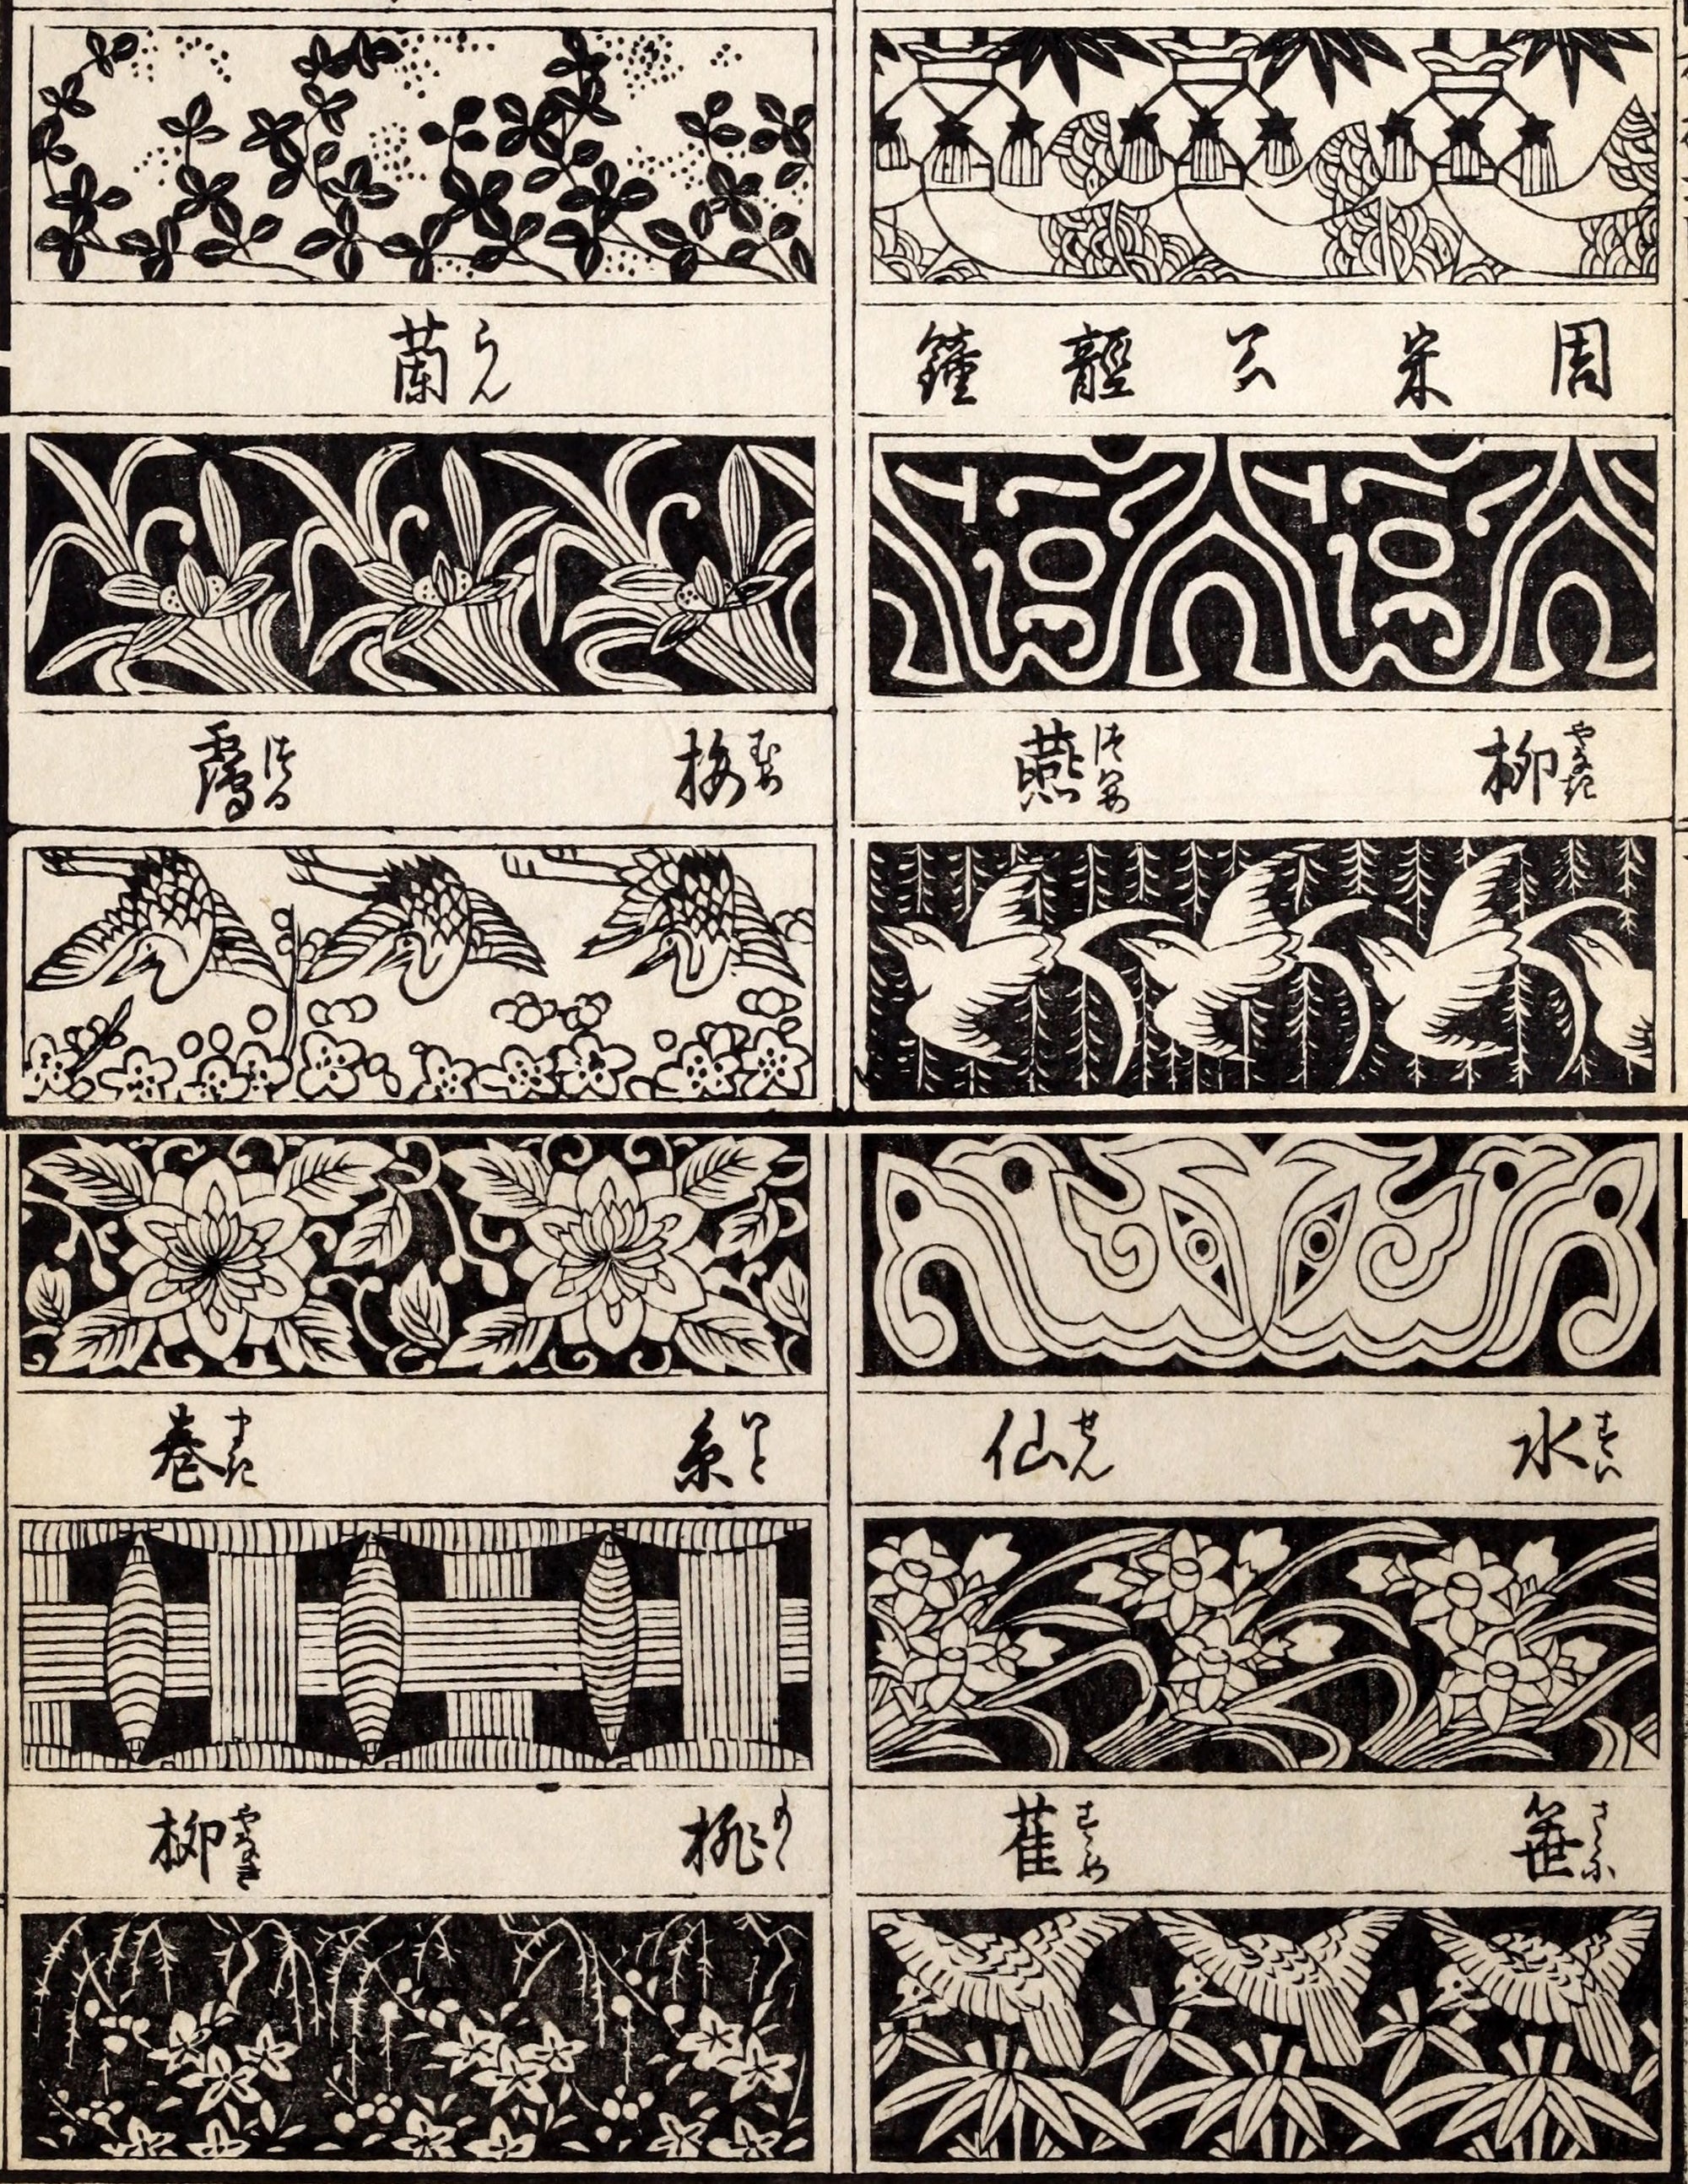 周宋公䪫鐘
蘭 らん
柳 やなぎ 燕 つばめ
梅 むめ 靏 つる
水 すい 仙 せん
糸 いと 巻 まき
笹 さゝに 雀 すゞめ
桃 もゝ 柳 やなぎ